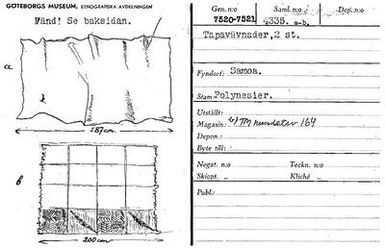 GÖTEBORGS MUSEUM, ETNOGRAFISKA AVDELNINGEN
Vänd! Se baksidan.
a
187 cm
b
200 cm
Gen. n:o Saml. n:o Dep. n:o
7520-7521 4335. a-b.
Tapavävnader, 2 st.
Fyndort: Samoa.
Stam Polynesier.
Utställt:
Magasin: 164
Depon.:
Byte till:
Negat. n:o Teckn. n:o
Skiopt. „ Kliché „
Publ.: